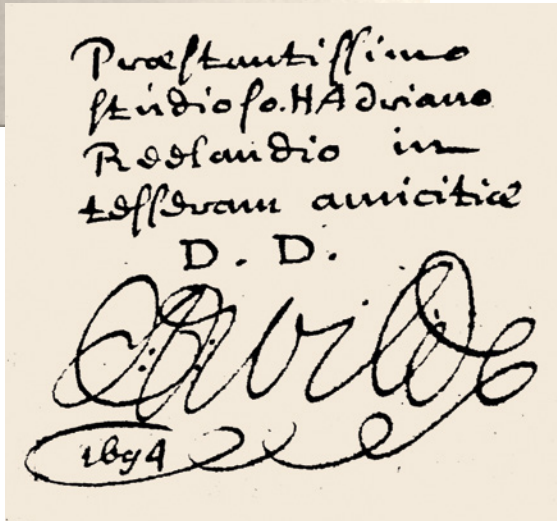 Præstantissimo
studioso. HAdriano
Reelandio in
tesseram amicitiæ
D. D.
de Wilde
1694